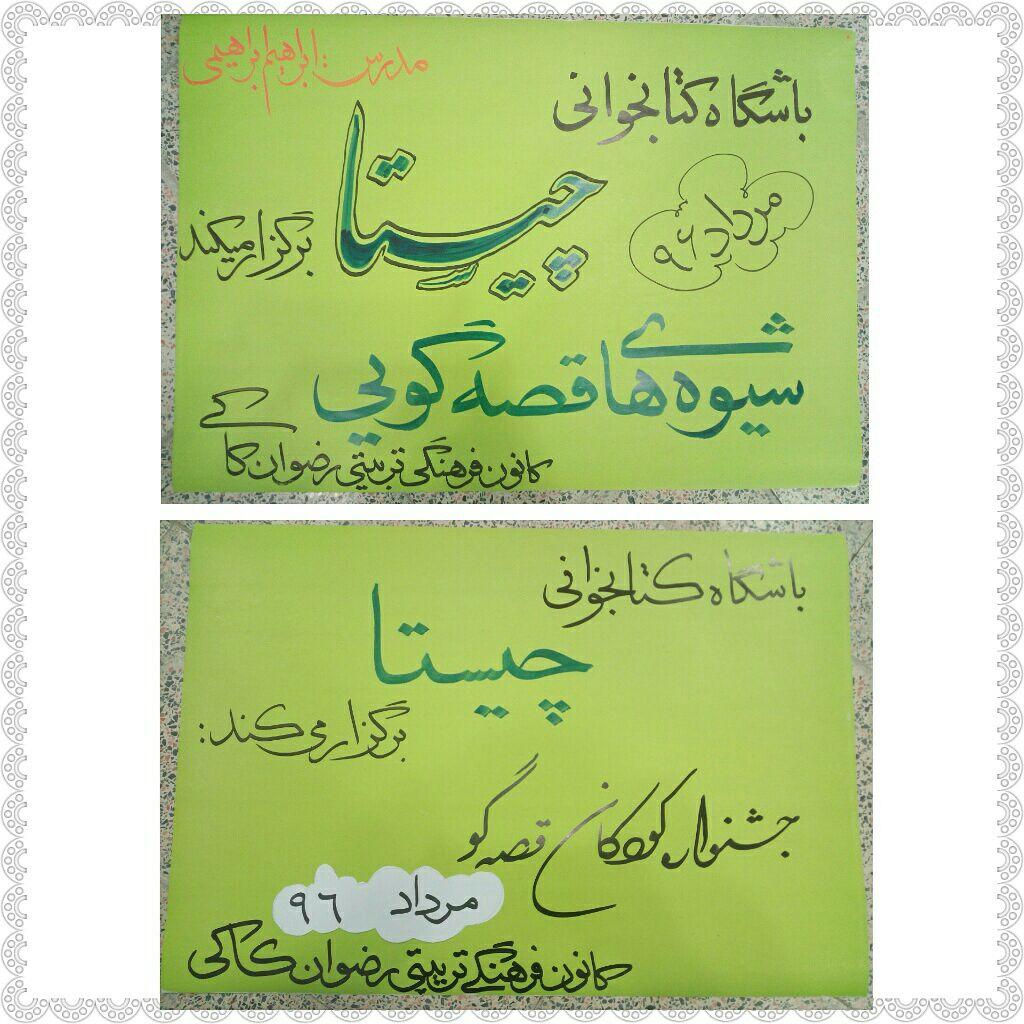 مدرس: ابراهیم ابراهیمی
باشگاه کتابخوانی
چیستا
مرداد ۹۶
برگزار میکند
شیوه های قصه گویی
کانون فرهنگی تربیتی رضوان کاکی
باشگاه کتابخوانی
چیستا
برگزار می کند:
جشنواره کودکان قصه گو
مرداد ۹۶
کانون فرهنگی تربیتی رضوان کاکی